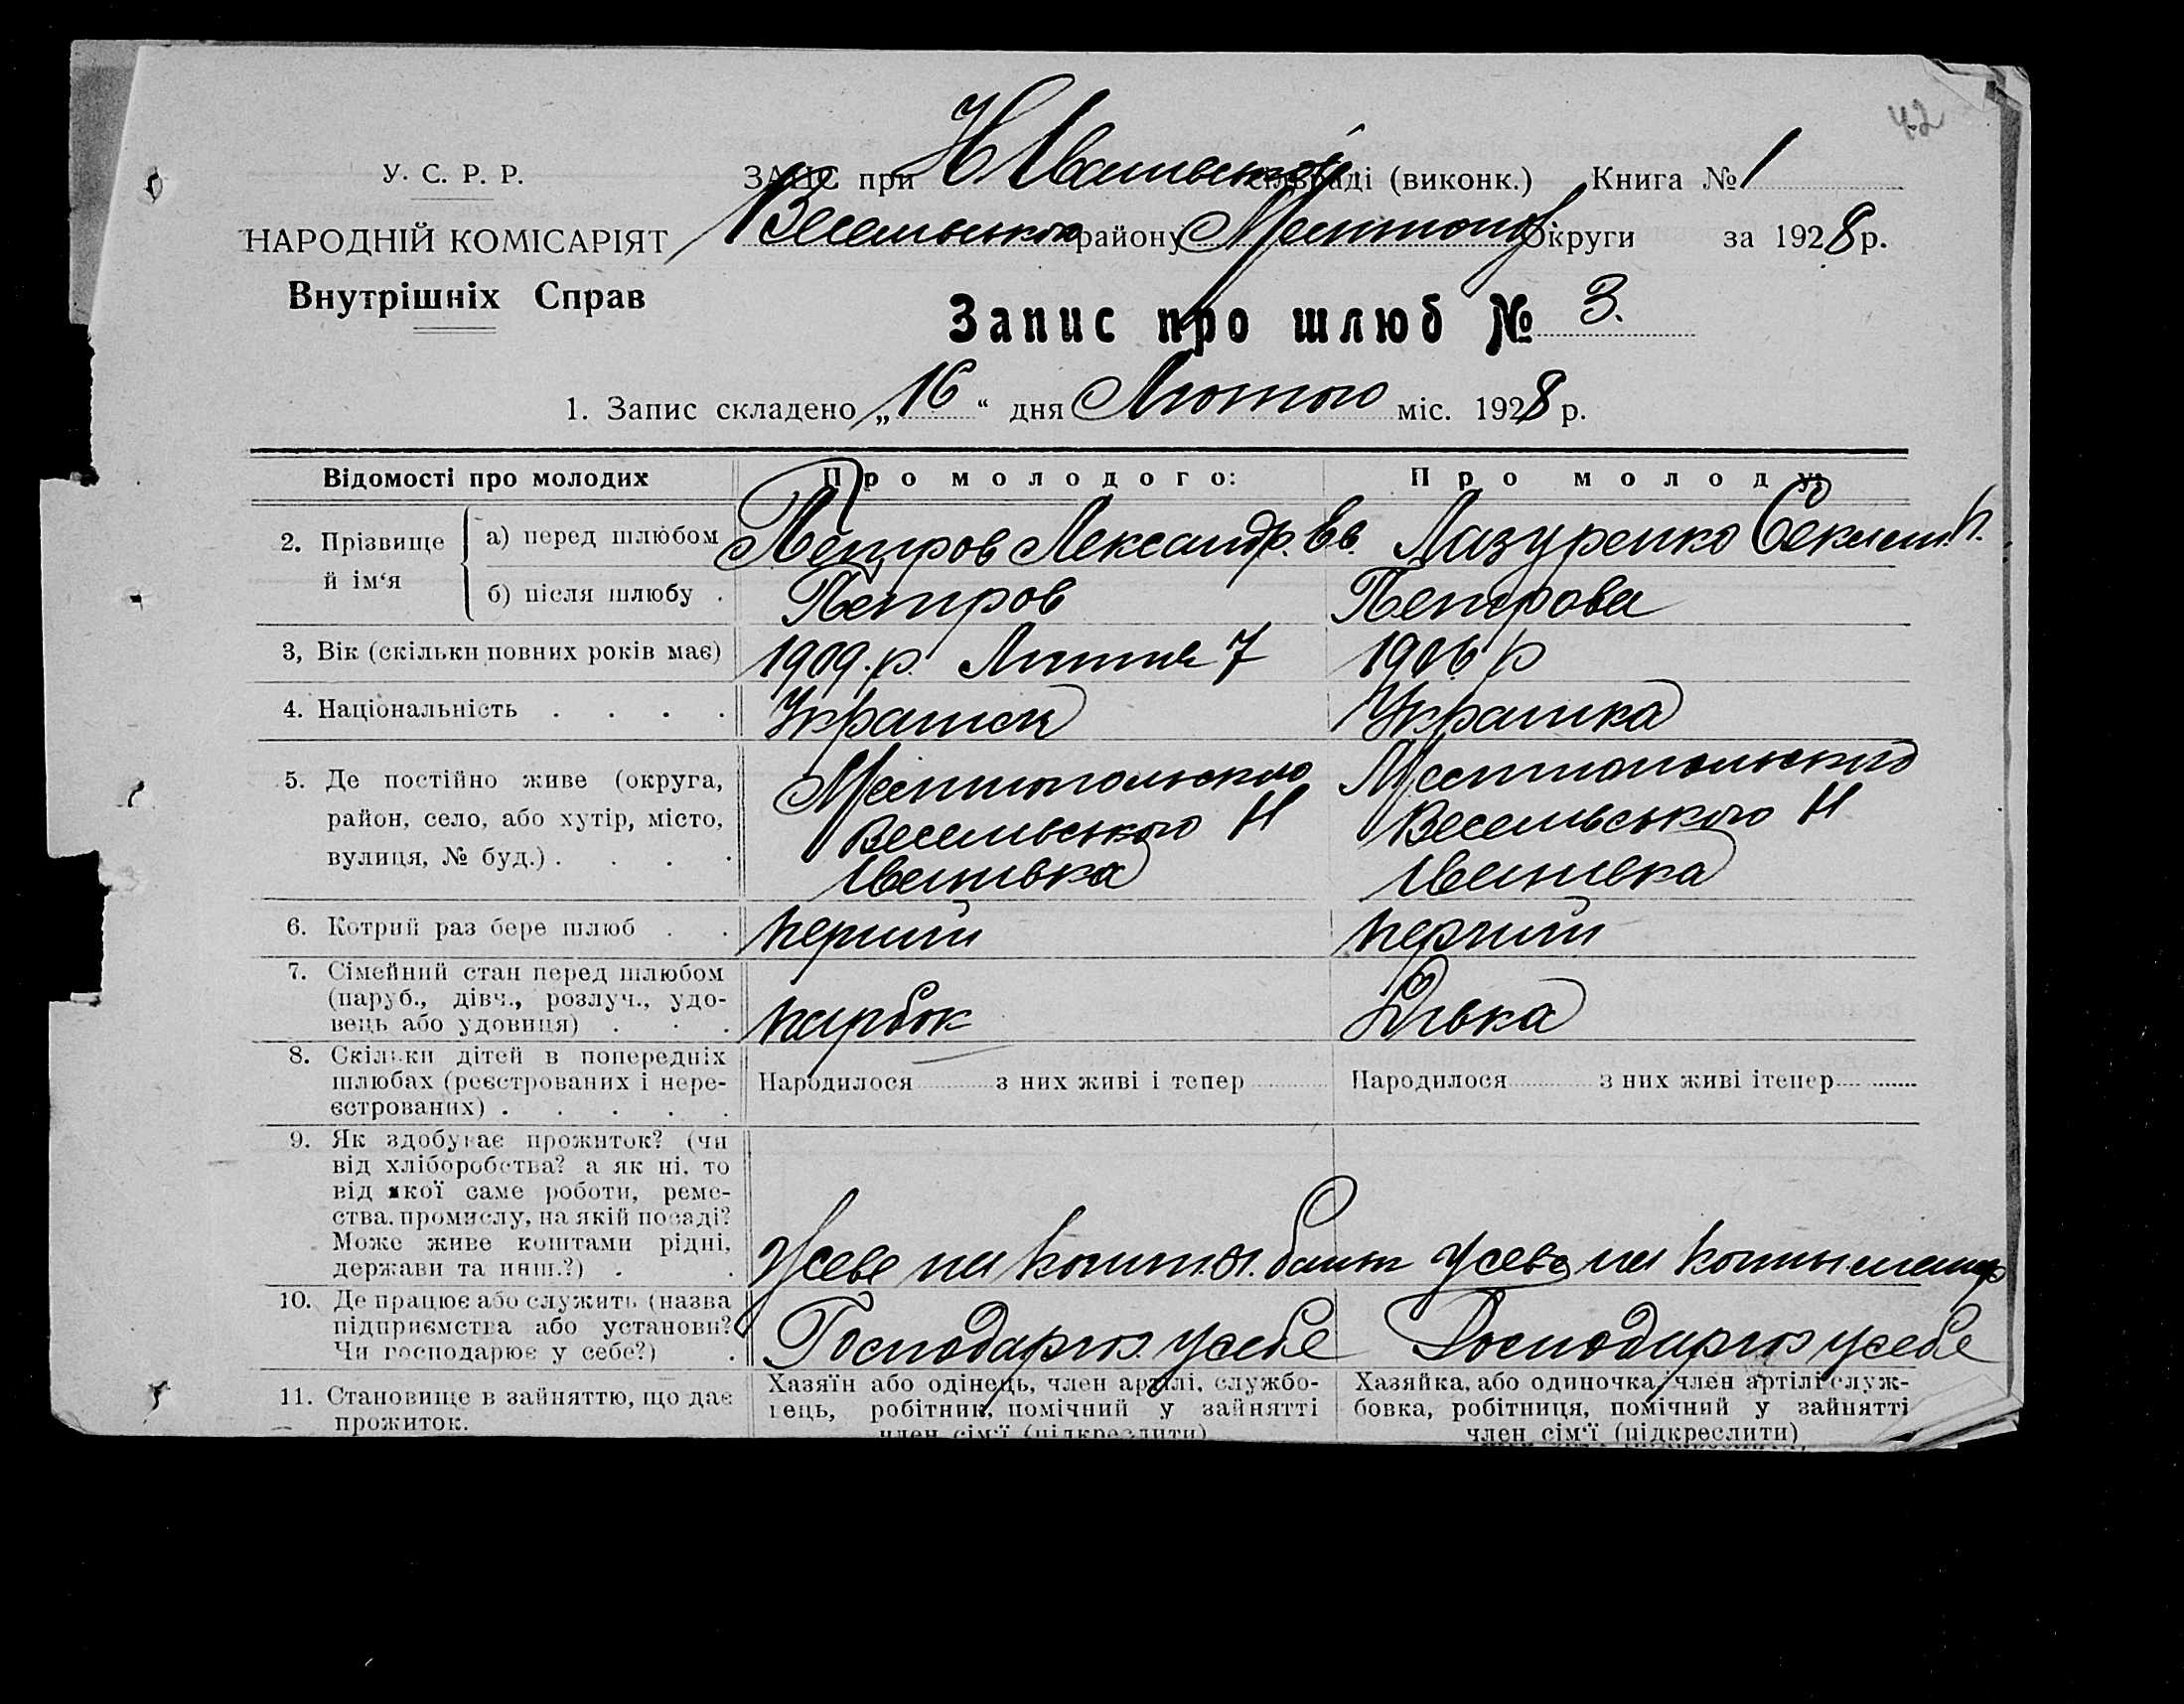 42
У. С. Р. Р.
НАРОДНІЙ КОМІСАРІЯТ
Внутрішніх Справ
ЗАПИС при Н Іванівській сільраді (виконк.) Книга № 1
Веселівського району Мелітопол. Округи за 1928 р.
Запис про шлюб № 3.
1. Запис складено „16“ дня Лютого міс. 1928 р.
Відомості про молодих
Про молодого:
Про молоду:
2. Прізвище й ім‘я
а) перед шлюбом
Петров Лександр. Єв.
Лазуренко Секлет. П.
б) після шлюбу .
Петров
Петрова
3, Вік (скільки повних років має)
1909.р. Липня 7
1906 р
4. Національність . . . .
Українец
Українка
5. Де постійно живе (округа,
район, село, або хутір, місто,
вулиця, № буд.) . . . .
Мелітопольского
Веселивського Н
Іванивка
Мелитопольского
Веселивського Н
Іванивка
6. Котрий раз бере шлюб . .
перший
перший
7. Сімейний стан перед шлюбом
(паруб., дівч., розлуч., удо-
вець або удовиця) . . .
парбок
Дівка
8. Скільки дітей в попередніх
шлюбах (реєстрованих і нере-
єстрованих) . . . . .
Народилося з них живі і тепер
Народилося з них живі ітепер
9. Як здобуває прожиток? (чи
від хліборобства? а як ні, то
від якої саме роботи, реме-
ства, промислу, на якій посаді?
Може живе коштами рідні,
держави та инш.?) . .
Усебе на кошт. батьк
усебе на кошты матер
10. Де працює або служить (назва
підприємства або установи?
Чи господарює у себе?) .
Господарює усебе
Господарює усебе
11. Становище в зайняттю, що дає
прожиток.
Хазяїн або одінець, член артілі, службо-
вець, робітник, помічний у зайнятті
член сім‘ї (підкреслити)
Хазяйка, або одиночка, член артілі служ-
бовка, робітниця, помічний у зайнятті
член сім‘ї (підкреслити)